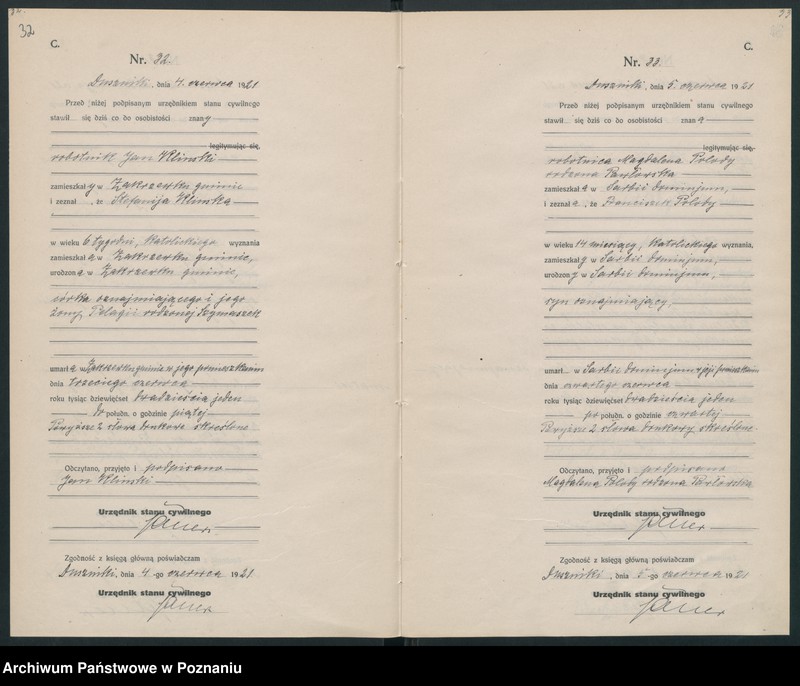 32
C.
Nr. 32.
Duszniki, dnia 4. czerwca 1921
Przed niżej podpisanym urzędnikiem stanu cywilnego
stawił się dziś co do osobistości znany
legitymując się,
robotnik Jan Klimski
zamieszkały w Zakrzewku gminie
i zeznał, że Stefanija Klimska
w wieku 6 tygodni, katolickiego wyznania
zamieszkała w Zakrzewku gminie,
urodzona w Zakrzewku gminie,
córka oznajmiającego i jego
żony Pelagii rodzonej Szymaszek
umarła w Zakrzewku gminie w jego pomieszkaniu
dnia trzeciego czerwca
roku tysiąc dziewięćset dwadzieścia jeden
do połudn. o godzinie piątej
Powyższe 2 słowa drukowe skreślone
Odczytano, przyjęto i podpisano
Jan Klimski
Urzędnik stanu cywilnego
Zgodność z księgą główną poświadczam
Duszniki, dnia 4-go czerwca 1921
Urzędnik stanu cywilnego
33
C.
Nr. 33.
Duszniki, dnia 5. czerwca 1921
Przed niżej podpisanym urzędnikiem stanu cywilnego
stawił się dziś co do osobistości znana
legitymując się,
robotnica Magdalena Poloby
rodzona Pawłowska
zamieszkała w Sarbii dominjum,
i zeznała, że Franciszek Poloby
w wieku 14 miesięcy, katolickiego wyznania,
zamieszkały w Sarbii dominjum,
urodzony w Sarbii dominjum,
syn oznajmiającej,
umarł w Sarbii dominjum w jej pomieszkaniu
dnia czwartego czerwca
roku tysiąc dziewięćset dwadzieścia jeden
po połudn. o godzinie czwartej
Powyższe 2 słowa drukowy skreślone
Odczytano, przyjęto i podpisano
Magdalena Poloby rodzona Pawłowska
Urzędnik stanu cywilnego
Zgodność z księgą główną poświadczam
Duszniki, dnia 5-go czerwca 1921
Urzędnik stanu cywilnego
Archiwum Państwowe w Poznaniu